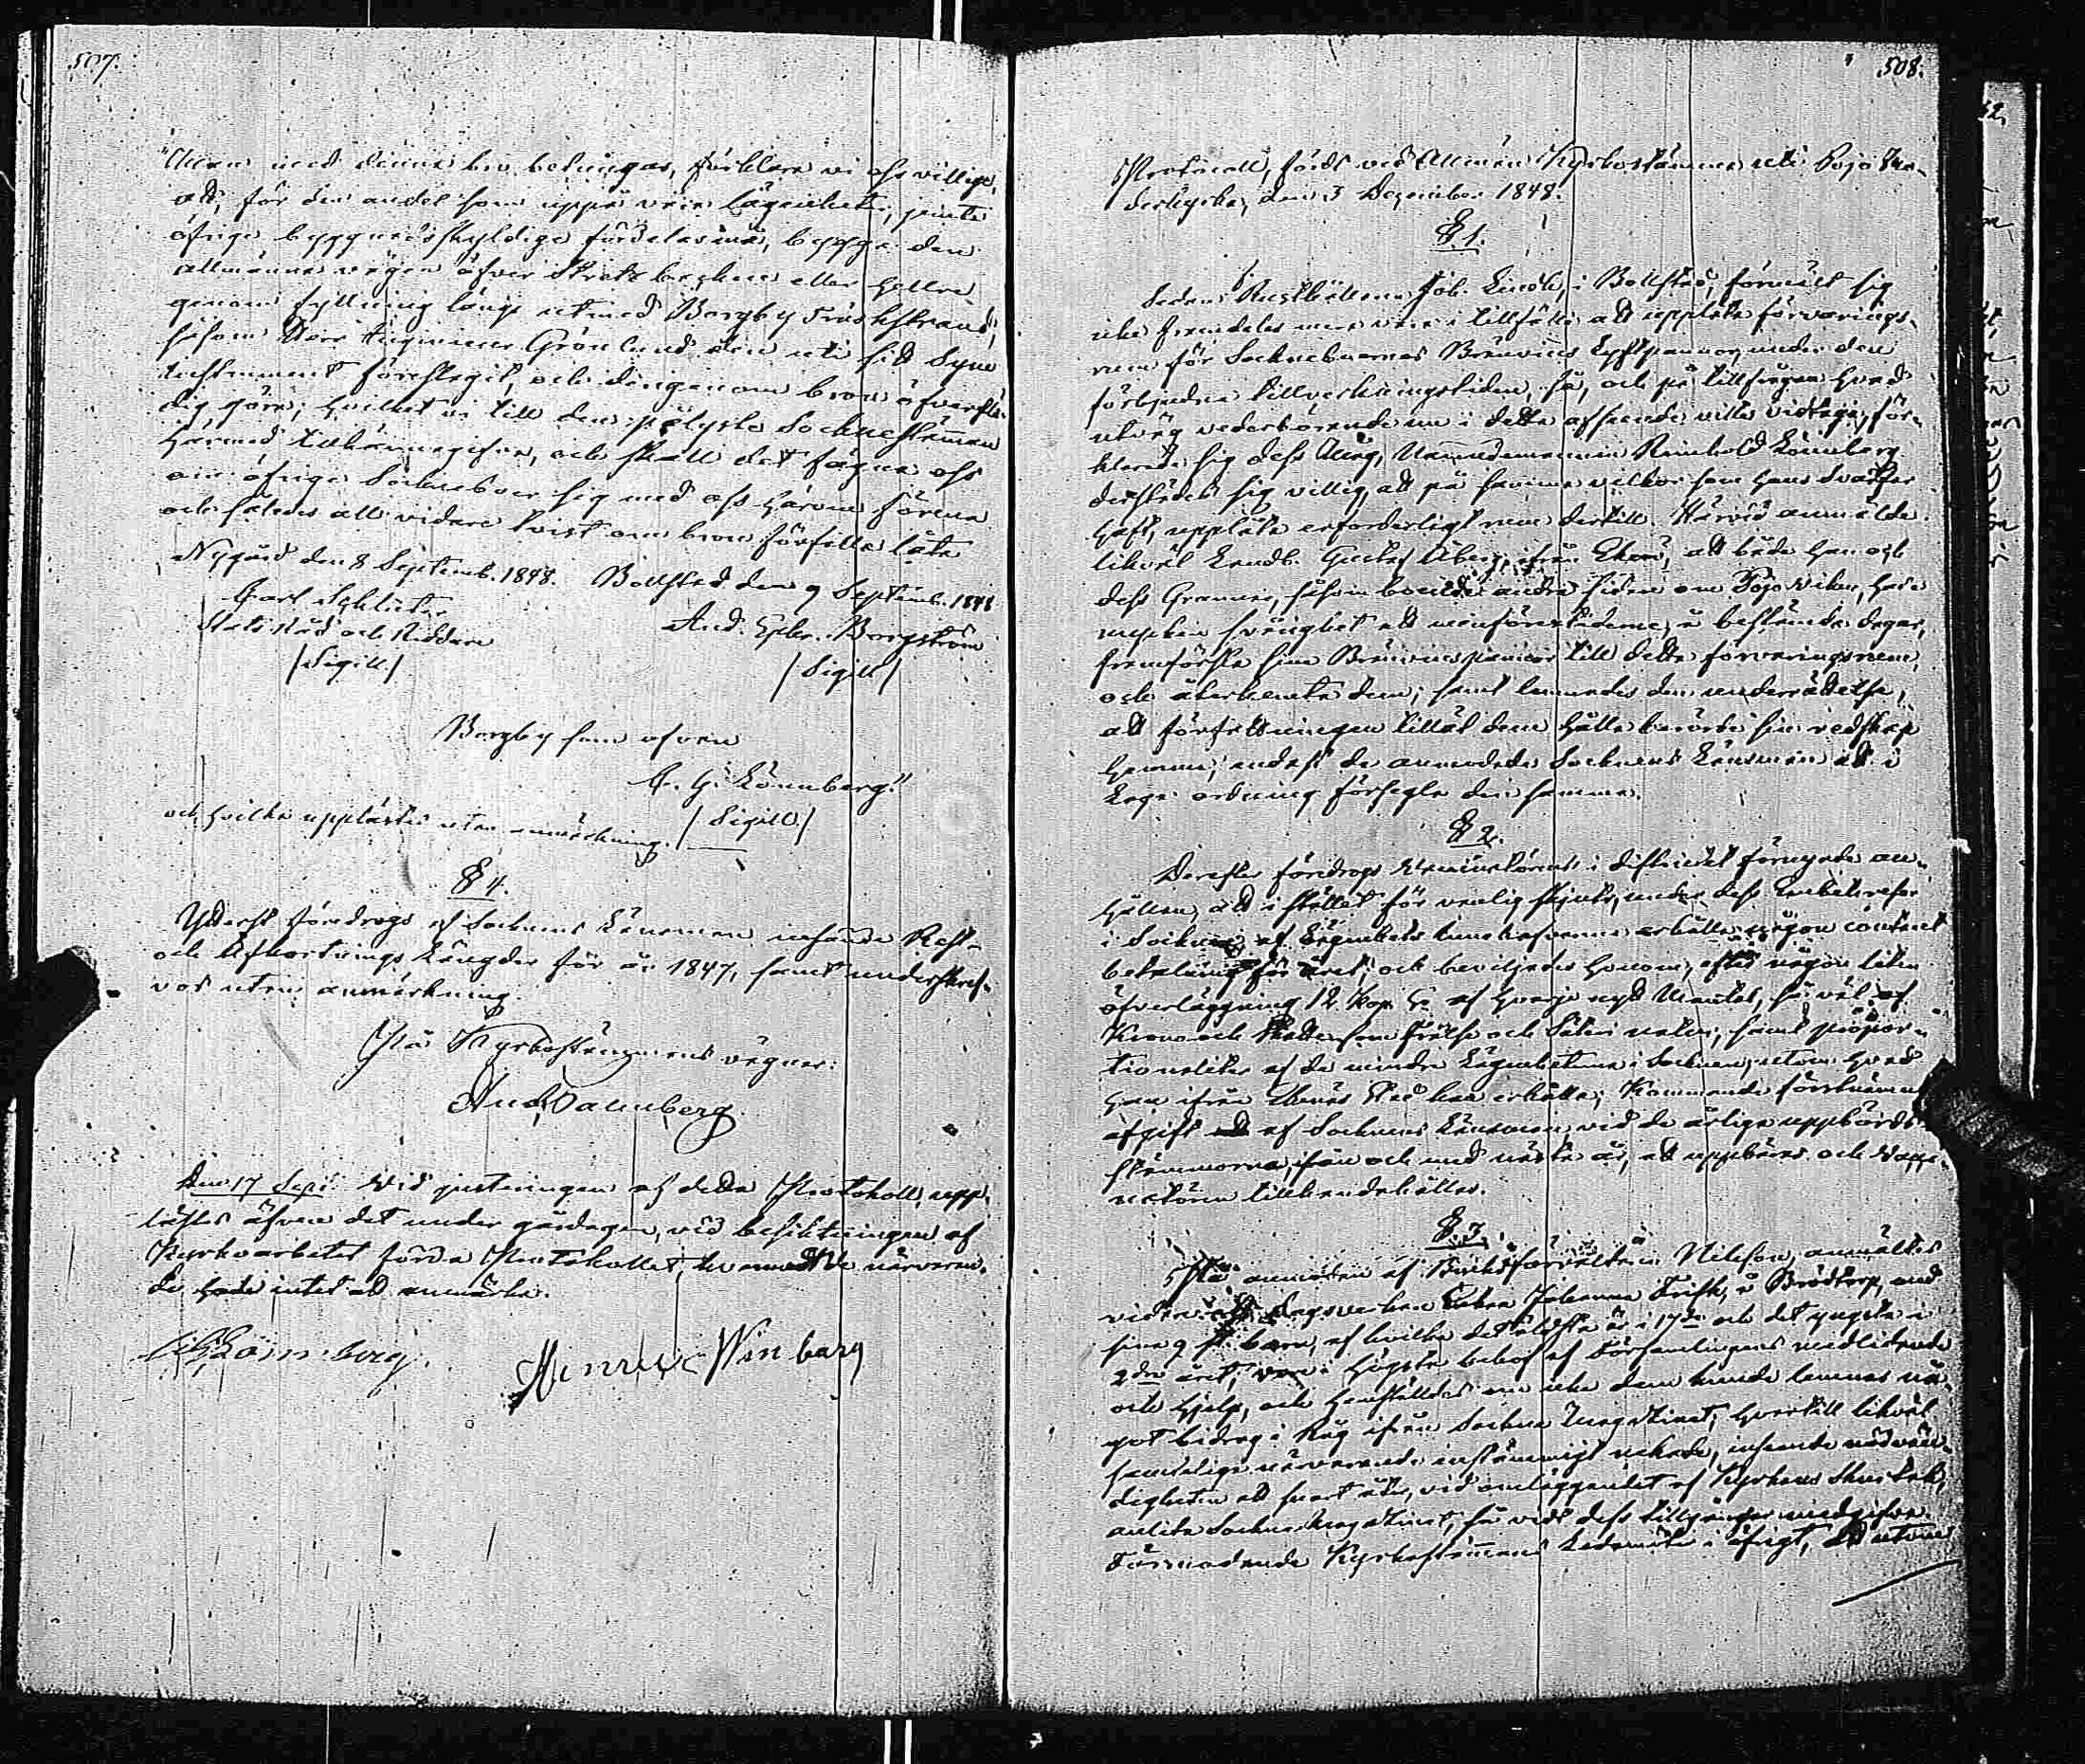 507.
"Ären med denna bro betingas, förklara vi oss villige,
att, för den andel som uppå våra lägenheter, jemte
öfrige byggnadsskyldige fördelas må, bygga den
allmänna vägen öfver backen eller hellre
genom fyllning längs utmed Borgby Träskstrand,
såsom Herr Ingenieur Grönlund den uti sitt Syne
Instrument föreslagit, och derigenom bron öfverflö-
dig göra; hvilket vi till den pålyste Sockenstämman
härmed tillkännagifva, och skall det fägna oss
om öfrige Sockneboer sig med oss härom förena
och således all vidare tvist om bron förfalla låta
Nygård den 8 Septemb. 1848. Bollstad den 9 Septemb. 1848
Carl Schlüter And. Borgström
Stats Råd och Riddare
/Sigill/ /Sigill/
Borgby som ofvan
C. G. Lönnberg."
/Sigill/
och hvilka upplästes utan anmärkning.
§ 4.
Ytterst föredrogs af Socknens Länsman införde Rest-
och Afkortnings Längder för år 1847, samt underskref-
vos utan anmärkning.
På Kyrkostämmans vägnar:
And. Danberg
Den 17 Sept. Vid justeringen af detta Protokoll, upp-
lästes äfven det under gårdagen, vid besiktningen af
Kyrkoarbetet förda Protokollet, hvaremot de närvaran-
de hade intet att anmärka.
C G Lönnberg. Henric Winberg
508.
Protocoll, fördt vid Allmän Kyrkostämma uti Pojo Mo-
derkyrka, den 3 December 1848.
§ 1.
Sedan Rusthållaren Joh. Lindh, i Bollstad, förmält sig
icke framdeles mera vara i tillfälle att upplåta förvarings-
rum för Sockneboernas Bränvins Typspannor, under den
förbjudna tillverkningstiden, så, och på tillfrågan hvad
utväg vederbörande nu i detta afseende ville vidtaga, för-
klarade sig dess Måg, Nämndemannen Reinhold Lönnberg
derstädes sig villig, att på samma vilkor som hans Svärfar
haft, upplåta erforderligt rum dertill. Härvid anmälde
likväl Landb. Gustaf Åberg, ifrån Ekerö, att både han och
dess Grannar, såsom boende å andra sidan om Pojo Viken, hade
mycken svårighet att menföresliderne, å bestämda dagar,
framforsla sina Bränvinspannor till detta förvaringsrum,
och återhemta dem; samt lemnades den underrättelse,
att författningen tillät dem hålla berörde sin redskap
hemma, endast de anmodade Socknens Länsman att i
Laga ordning försegla den samma.
§ 2.
Derefter föredrogs Vaccinatörens i distriktet förnyade an-
hållan, att i stället för vanlig skjuts, under dess Embetsresor
i Socknen, af Lägenhets innehafvarne erhålla någon contant
betalning för året; och beviljades honom, efter någon liten
öfverläggning 12. Kop. Sr af hvarje nytt Mantal, så väl af
Krono och Skatte som Frälse och Säteri natur; samt propor-
tionaliter af de mindre Lägenheterna i Socknen, utom hvad
han ifrån Ekenäs Stad kan erhålla; Kommande förstnämnde
afgift af Socknens Länsman, vid de årliga uppbörds-
stämmorna, från och med nästa år, att uppbäras och Vacci-
natören tillhandahållas.
§ 3.
På anmodan af Bruksförvaltaren Nilsson, anmältes
vidare att dagsverkare Enkan Johanna Frisk, å Brödtorp, med
sina 9 st. barn, af hvilka det äldsta är i 17de och det yngsta i
2dra året, vore i högsta behof af Församlingens medlidande
och hjelp, och hemställdes om icke dem kunde lemnas nå-
got bidrag i Råg ifrån Sockne Magazinet; hvartill likväl
samtelige närvarande enstämmigt nekade, inseende nödvän-
digheten att snart åter, vid omläggandet af Kyrkans tak,
anlita Sockne-Magazinet, så vidt dess tillgångar medgifva.
Förmodande Kyrkostämmans Ledamöter i öfrigt, att utom